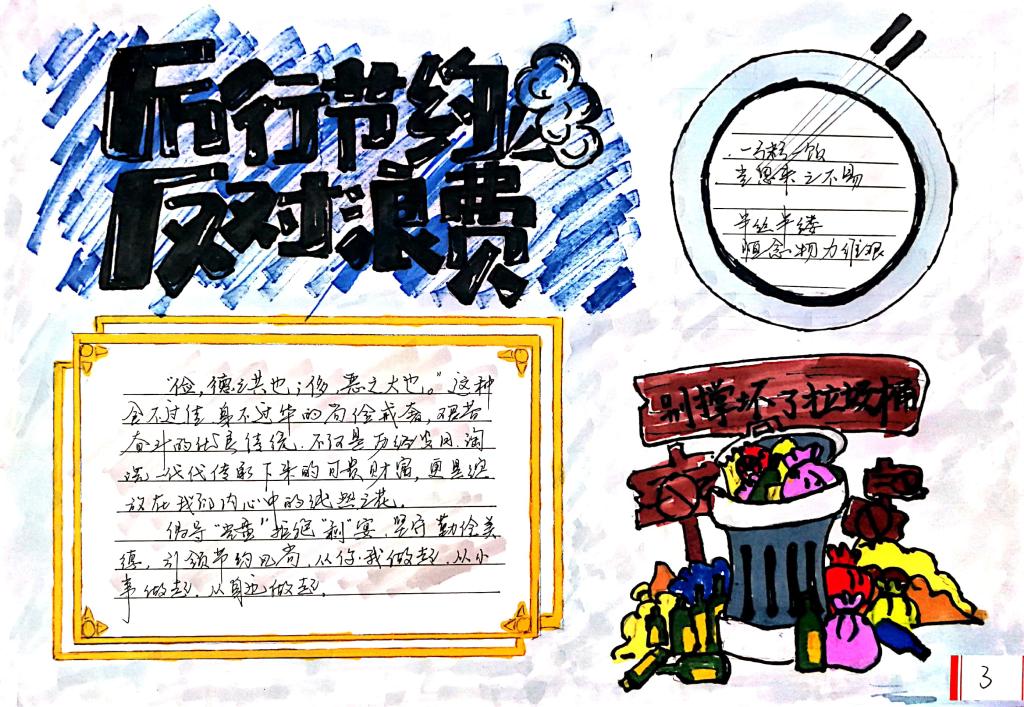 厉行节约
反对浪费
一粥一饭
当思来之不易
半丝半缕
恒念物力维艰
"俭,德之共也;侈,恶之大也。"这种
食不过佳 身不过华的尚俭戒奢,艰苦
奋斗的优良传统,不仅是历经岁月淘
洗一代代传承下来的可贵财富,更是绽
放在我们内心中的纯然之花。
倡导"光盘"拒绝"剩"宴,坚守勤俭美
德,引领节约风尚,从你我做起,从小
事做起,从身边做起.
别撑坏了垃圾桶
3